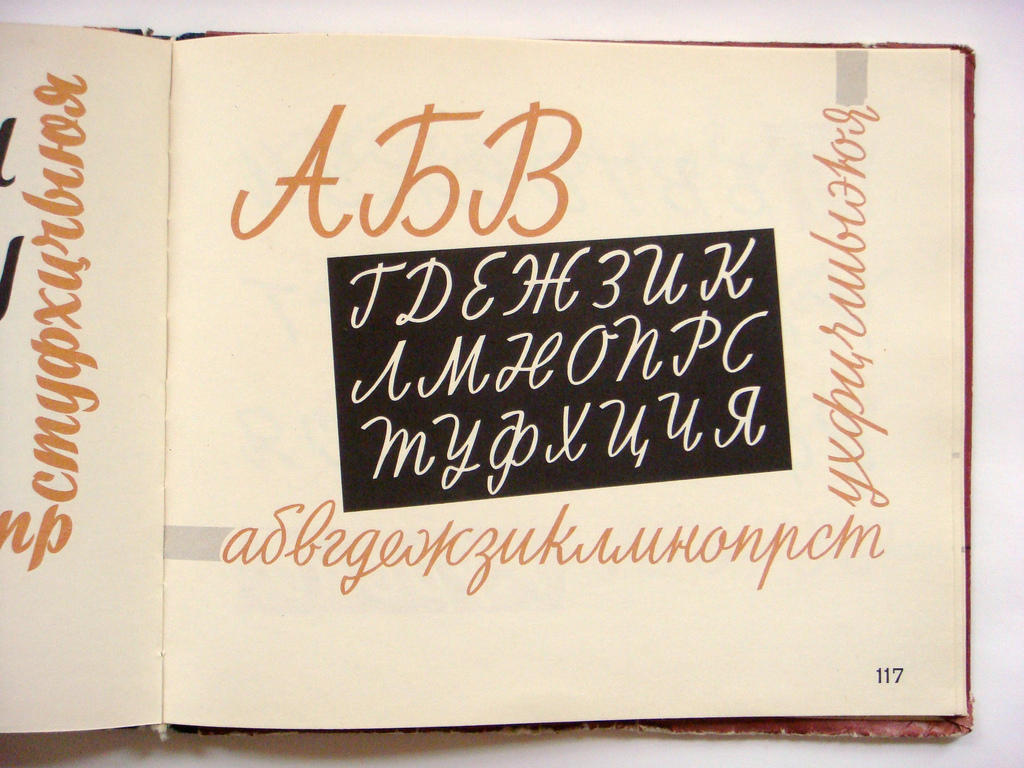 прстуфхцчьыюя
АБВ
ГДЕЖЗИК
ЛМНОПРС
ТУФХЦЧЯ
абвгдежзиклмнопрст
ухфцчшьыэюя
117